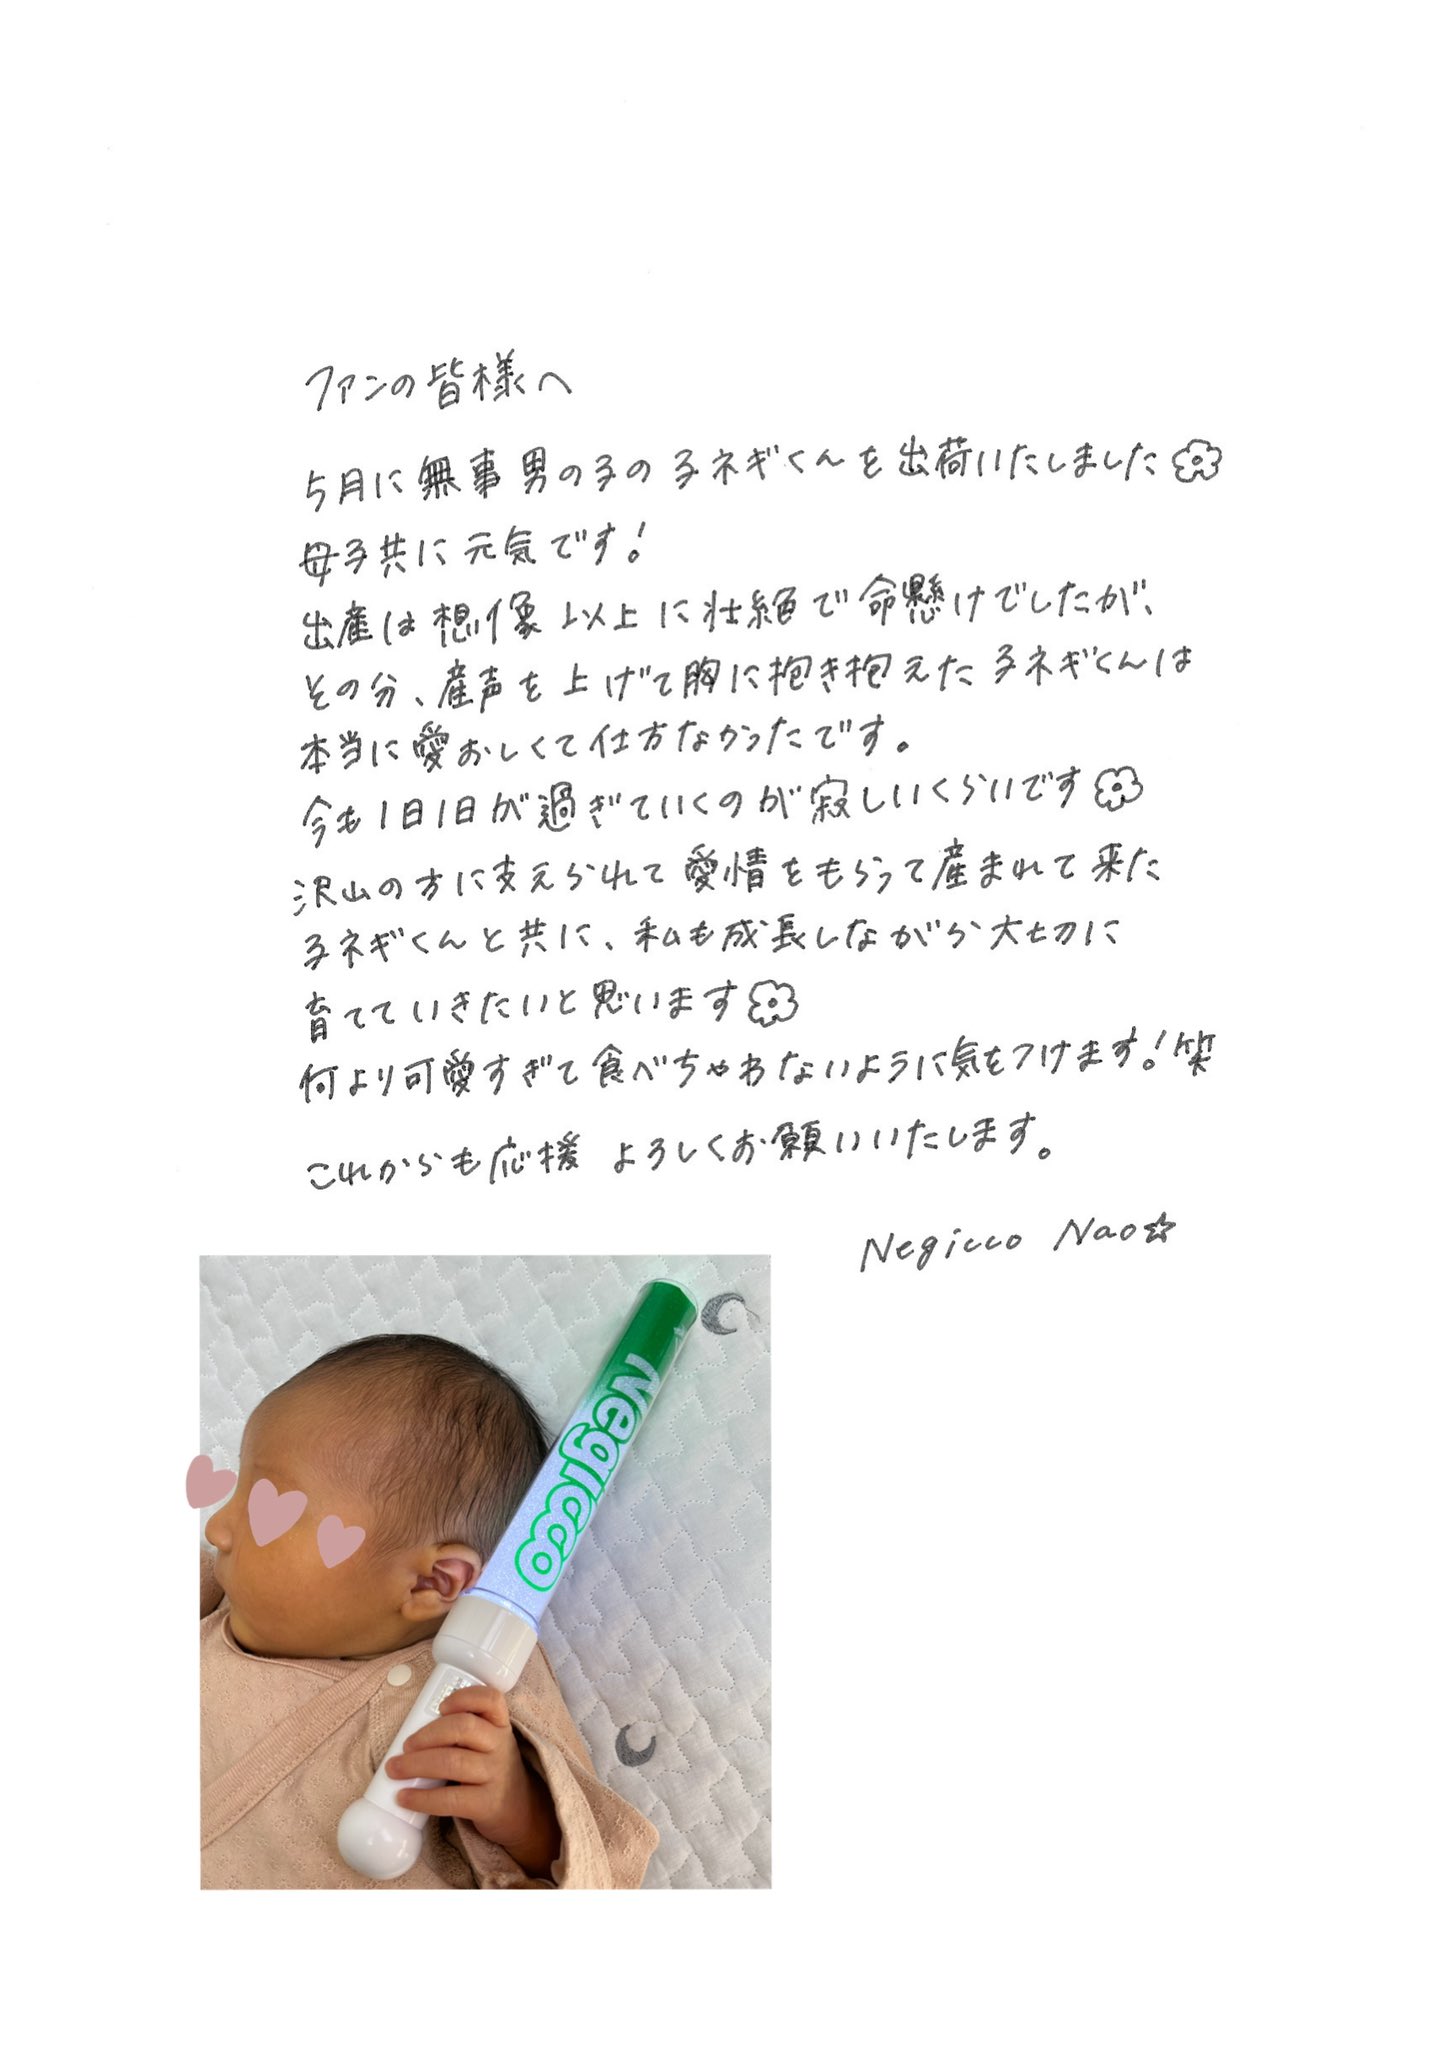 ファンの皆様へ
5月に無事男の子の子ネギくんを出荷いたしました
母子共に元気です!
出産は想像以上に壮絶で命懸けでしたが、
その分、産声を上げて胸に抱き抱えた子ネギくんは
本当に愛おしくて仕方なかったです。
今も1日1日が過ぎていくのが寂しいくらいです
沢山の方に支えられて愛情をもらって産まれて来た
子ネギくんと共に、私も成長しながら大切に
育てていきたいと思います
何より可愛すぎて食べちゃわないように気をつけます!笑
これからも応援よろしくお願いいたします。
Negicco Nao☆
Negicco